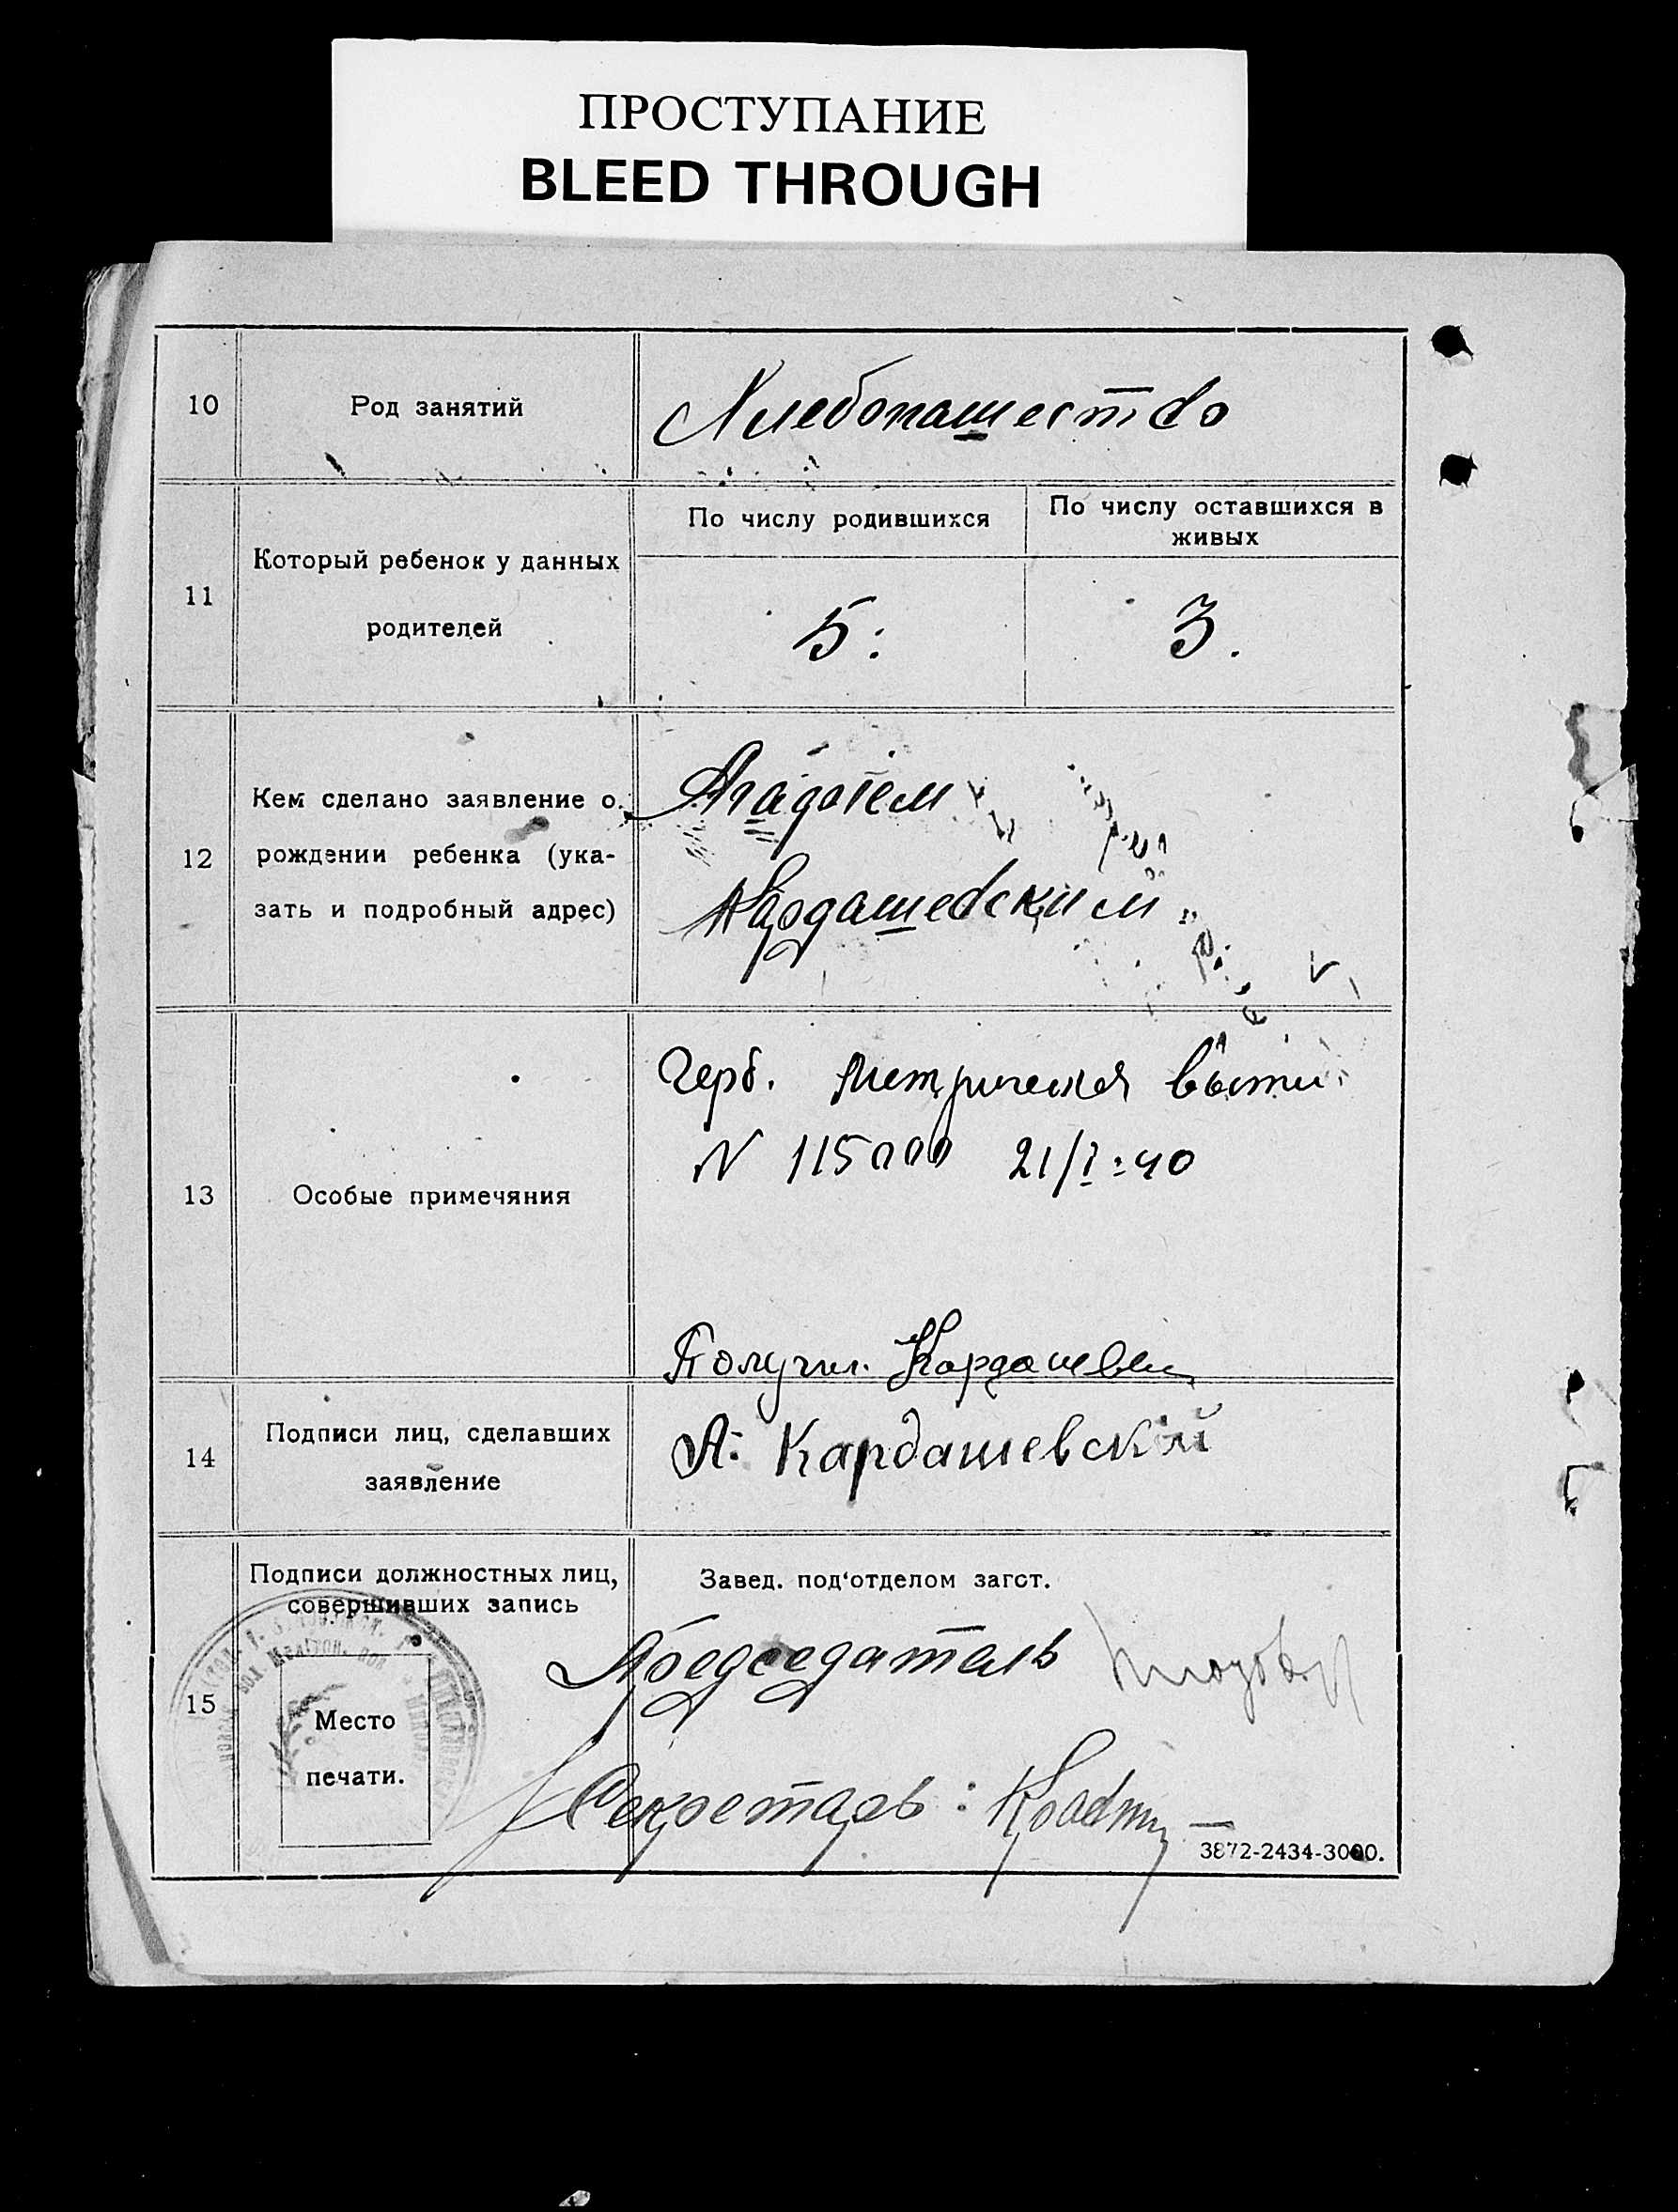 ПРОСТУПАНИЕ
BLEED THROUGH
10
Род занятий
Хлебопашество
11
Который ребенок у данных
родителей
По числу родившихся
По числу оставшихся в
живых
5.
3.
12
Кем сделано заявление о
рождении ребенка (ука-
зать и подробный адрес)
Кардашевским
13
Особые примечяния
Метрическая
N 115000 21/I-40
Получил Кардашевск
14
Подписи лиц, сделавших
заявление
А. Кардашевский
15
Подписи должностных лиц,
совершивших запись
Место
печати.
Завед. под'отделом загст.
Председатель
Секретарь:
3872-2434-3000.